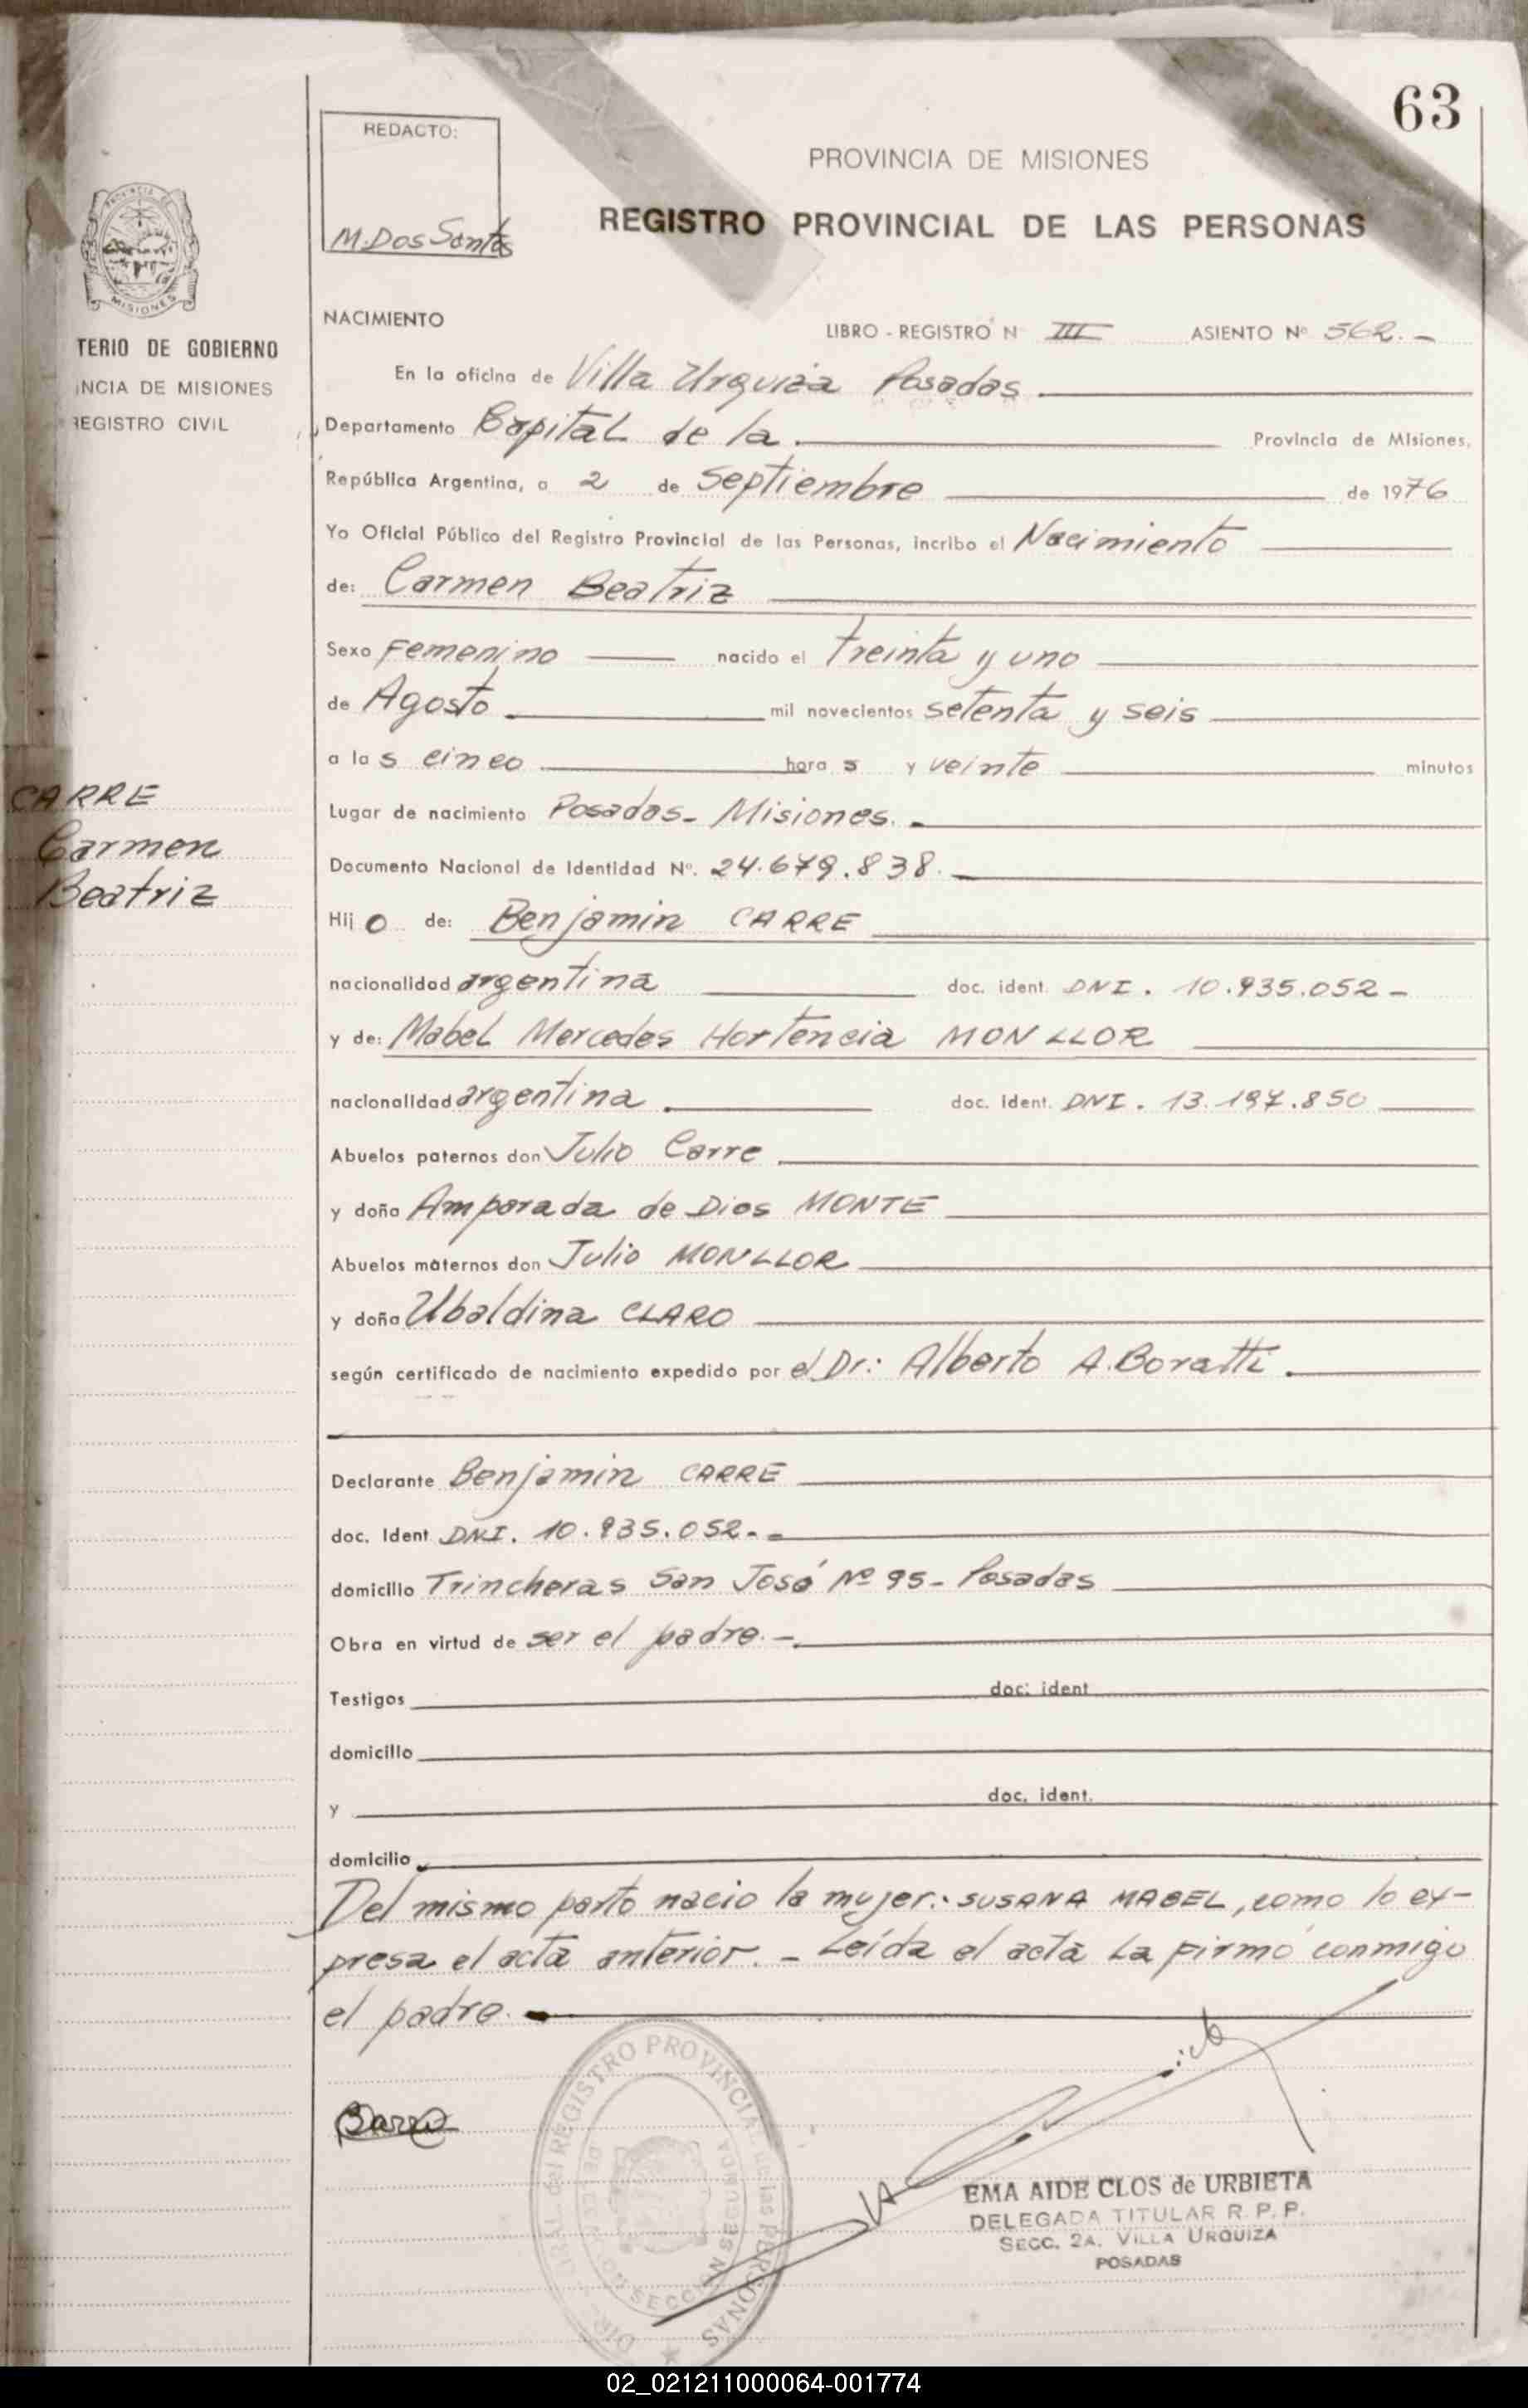 63
REDACTO:
M. Dos Santos
PROVINCIA DE MISIONES
REGISTRO PROVINCIAL DE LAS PERSONAS
PROVINCIA DE
MISIONES
TERIO DE GOBIERNO
INCIA DE MISIONES
REGISTRO CIVIL
CARRE
Carmen
Beatriz
NACIMIENTO
LIBRO - REGISTRO N III ASIENTO Nº 562.-
En la oficina de Villa Urquiza Posadas
Departamento Capital de la Provincia de Misiones,
República Argentina, a 2 de Septiembre de 1976
Yo Oficial Público del Registro Provincial de las Personas, incribo el Nacimiento
de: Carmen Beatriz
Sexo Femenino nacido el treinta y uno
de Agosto mil novecientos setenta y seis
a las cinco horas y veinte minutos
Lugar de nacimiento Posadas - Misiones.
Documento Nacional de Identidad Nº. 24.679.838.
Hijo de: Benjamin CARRE
nacionalidad argentina doc. ident. DNI. 10.935.052-
y de: Mabel Mercedes Hortencia MONLLOR
nacionalidad argentina. doc. ident. DNI. 13.197.850
Abuelos paternos don Julio Carre
y doña Amparada de Dios MONTE
Abuelos maternos don Julio MONLLOR
y doña Ubaldina CLARO
según certificado de nacimiento expedido por el Dr.: Alberto A. Boratti.
Declarante Benjamin CARRE
doc. Ident DNI. 10.935.052.-
domicilio Trincheras San José Nº 95- Posadas
Obra en virtud de ser el padre.-
Testigos doc. ident
domicilio
y doc. ident.
domicilio
Del mismo parto nacio la mujer: SUSANA MABEL, como lo ex-
presa el acta anterior.- Leída el acta la firmó conmigo
el padre.
REGISTRO PROVINCIAL de las PERSONAS
SECCION SEGUNDA
EMA AIDE CLOS de URBIETA
DELEGADA TITULAR R. P. P.
SECC. 2A. VILLA URQUIZA
POSADAS
02_021211000064-001774